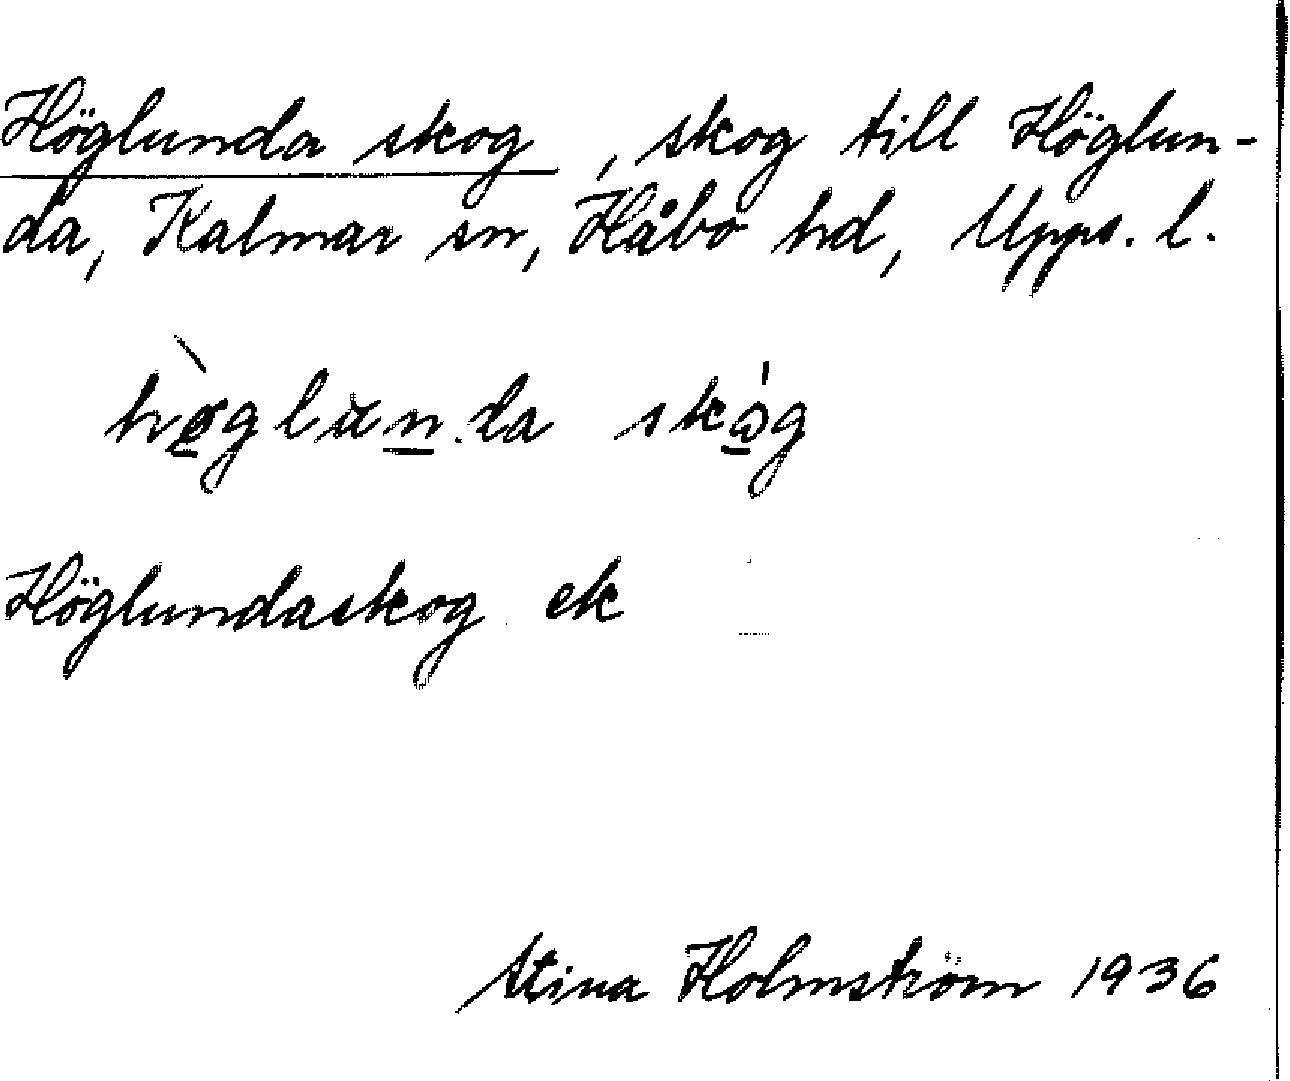 Höglunda skog, skog till Höglun-
da, Kalmar sn, Håbo hd, Upps. l.
hø̀glunda skóg
Höglundaskog ek
Stina Holmström 1936